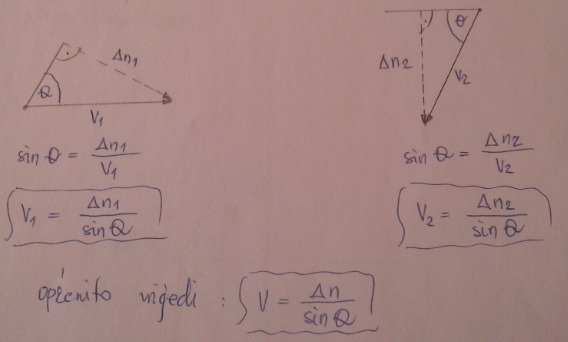 Δn₁
Θ
V₁
sin Θ = Δn₁ / V₁
V₁ = Δn₁ / sin Θ
Θ
Δn₂
V₂
sin Θ = Δn₂ / V₂
V₂ = Δn₂ / sin Θ
općenito vrijedi : V = Δn / sin Θ